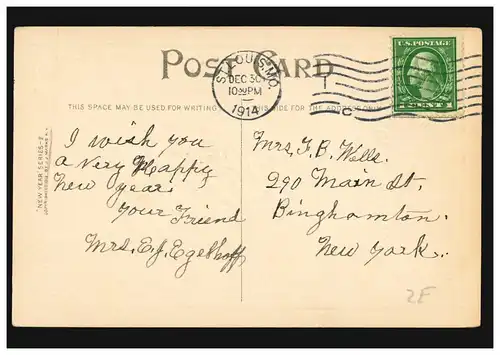 POST CARD
ST. LOUIS, MO.
DEC 30
10 30 PM
1914
U.S. POSTAGE
1 CENT 1
THIS SPACE MAY BE USED FOR WRITING
THIS SIDE FOR THE ADDRESS ONLY
"NEW YEAR" SERIES-
I wish you
a Very Happy
New year.
Your Friend
Mrs. E.J. Egelhoff
Mrs. J. B. Wells.
290 Main St.
Binghamton.
New York.
2F